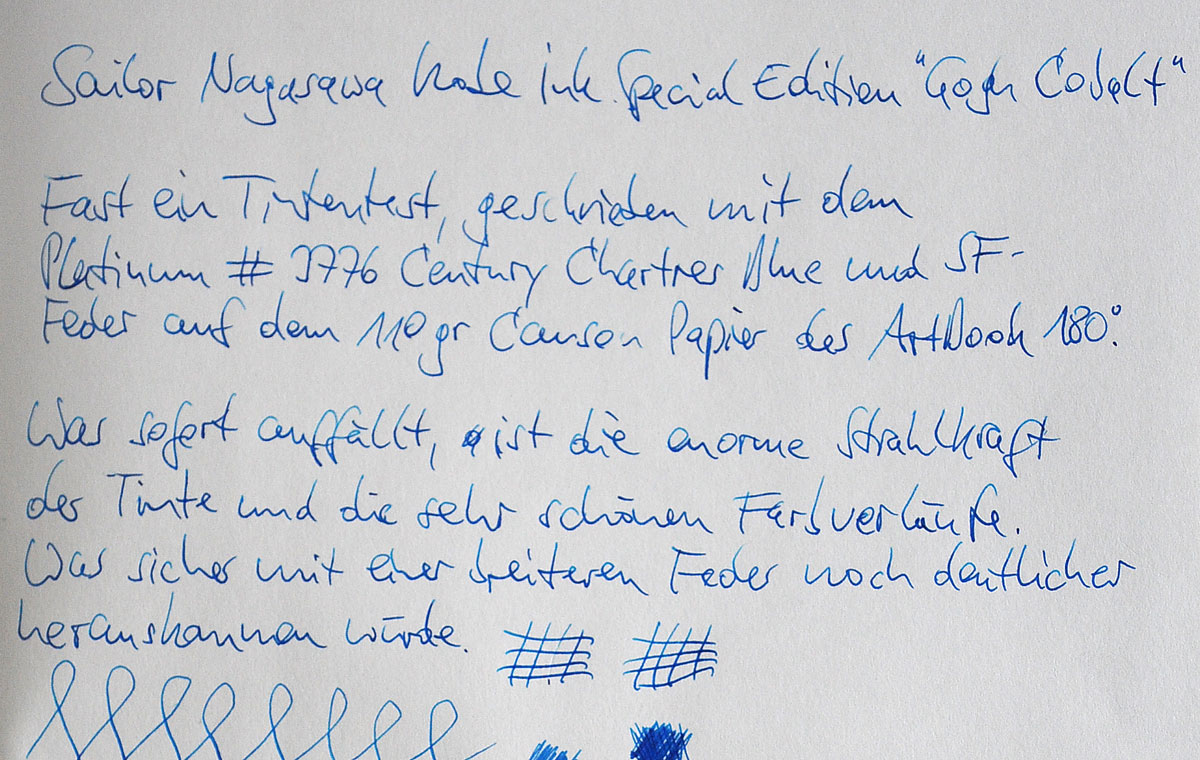 Sailor Nagasawa Kobe Ink Special Edition "Gogh Cobalt"
Fast ein Tintentest, geschrieben mit dem
Platinum # 3776 Century Chartres Blue und SF-
Feder auf dem 110 gr Canson Papier des ArtBook 180°.
Was sofort auffällt, ist die enorme Strahlkraft
der Tinte und die sehr schönen Farbverläufe.
Was sicher mit einer breiteren Feder noch deutlicher
herauskommen würde.